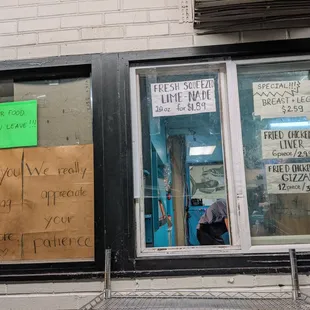 R FOOD
U LEAVE !!!
YOU We really
appreciate
your
patience
FRESH SQUEEZD
LIME-NADE
20 oz for $1.89
SPECIAL!!!
BREAST & LEG
$2.59
FRIED CHICKEN
LIVER
6 piece/
FRIED CHICKEN
GIZZA
12 piece/